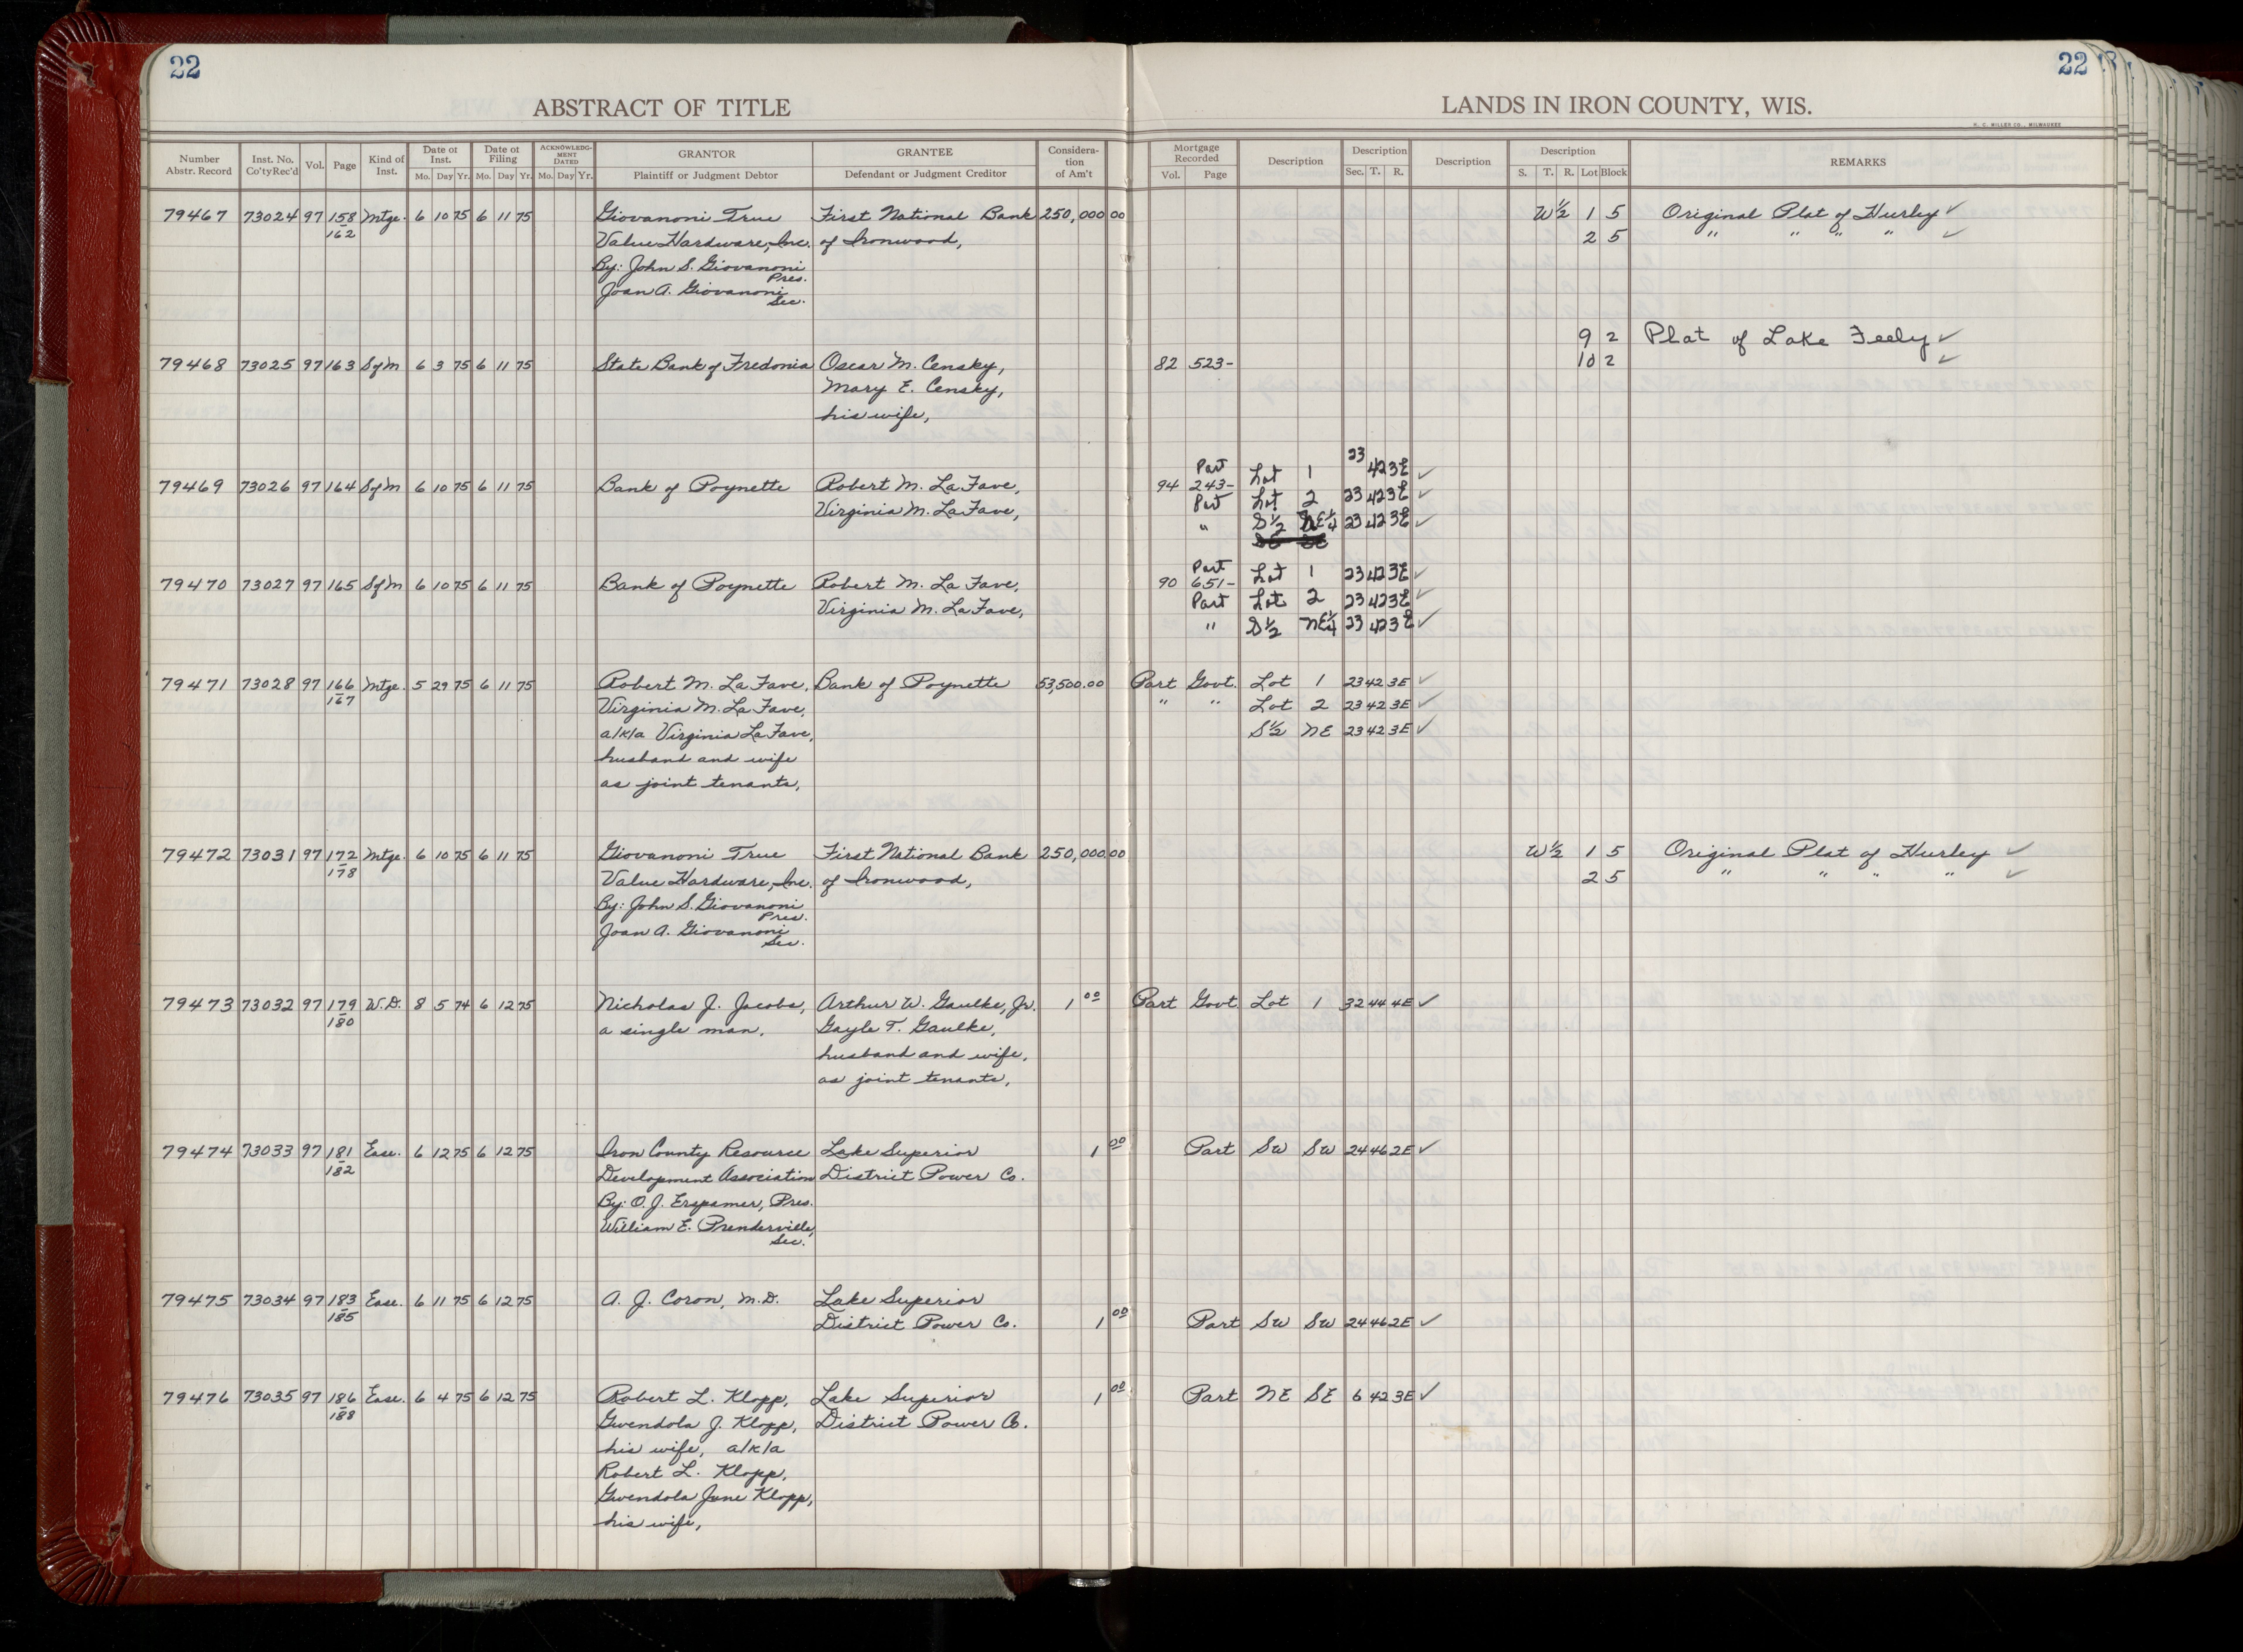 22
22
ABSTRACT OF TITLE
LANDS IN IRON COUNTY, WIS.
H. C. MILLER CO., MILWAUKEE
Number Abstr. Record Inst. No. Co'ty Rec'd Vol. Page Kind of Inst. Date of Inst. Mo. Day Yr. Date of Filing Mo. Day Yr. ACKNOWLEDGMENT DATED Mo. Day Yr. GRANTOR Plaintiff or Judgment Debtor GRANTEE Defendant or Judgment Creditor Consideration of Am't Mortgage Recorded Vol. Page Description Description Sec. T. R. Description Description S. T. R. Lot Block REMARKS
79467 73024 97 158 Mtge. 6 10 75 6 11 75 Giovanoni True First National Bank 250,000 00 W½ 1 5 Original Plat of Hurley ✓
162 Value Hardware, Inc. of Ironwood, 2 5 " " " " ✓
By: John S. Giovanoni
Pres.
Joan A. Giovanoni
Sec.
9 2 Plat of Lake Feely ✓
79468 73025 97 163 SofM 6 3 75 6 11 75 State Bank of Fredonia Oscar M. Censky, 82 523- 10 2 ✓
Mary E. Censky,
his wife,
Part Lot 1 23 42 3E ✓
79469 73026 97 164 SofM 6 10 75 6 11 75 Bank of Poynette Robert M. La Fave, 94 243-
Part Lot 2 23 42 3E ✓
Virginia M. La Fave,
" S½ NE¼ 23 42 3E ✓
Part Lot 1 23 42 3E ✓
79470 73027 97 165 SofM 6 10 75 6 11 75 Bank of Poynette Robert M. La Fave, 90 651-
Virginia M. La Fave, Part Lot 2 23 42 3E ✓
" S½ NE¼ 23 42 3E ✓
79471 73028 97 166 Mtge. 5 29 75 6 11 75 Robert M. La Fave, Bank of Poynette 53,500.00 Part Govt. Lot 1 23 42 3E ✓
167 Virginia M. La Fave, " " Lot 2 23 42 3E ✓
a/k/a Virginia La Fave, S½ NE 23 42 3E ✓
husband and wife
as joint tenants,
79472 73031 97 172 Mtge. 6 10 75 6 11 75 Giovanoni True First National Bank 250,000 00 W½ 1 5 Original Plat of Hurley ✓
178 Value Hardware, Inc. of Ironwood, 2 5 " " " " ✓
By: John S. Giovanoni
Pres.
Joan A. Giovanoni
Sec.
79473 73032 97 179 W.D. 8 5 74 6 12 75 Nicholas J. Jacobs, Arthur W. Gaulke, Jr. 1 00 Part Govt. Lot 1 32 44 4E ✓
180 a single man, Gayle T. Gaulke,
husband and wife,
as joint tenants,
79474 73033 97 181 Ease. 6 12 75 6 12 75 Iron County Resource Lake Superior 1 00 Part SW SW 24 46 2E ✓
182 Development Association District Power Co.
By: O. J. Erspamer, Pres.
William E. Prenderville,
Sec.
79475 73034 97 183 Ease. 6 11 75 6 12 75 A. J. Coron, M.D. Lake Superior
185 District Power Co. 1 00 Part SW SW 24 46 2E ✓
79476 73035 97 186 Ease. 6 4 75 6 12 75 Robert L. Klopp, Lake Superior 1 00 Part NE SE 6 42 3E ✓
188 Gwendola J. Klopp, District Power Co.
his wife, a/k/a
Robert L. Klopp,
Gwendola June Klopp,
his wife,